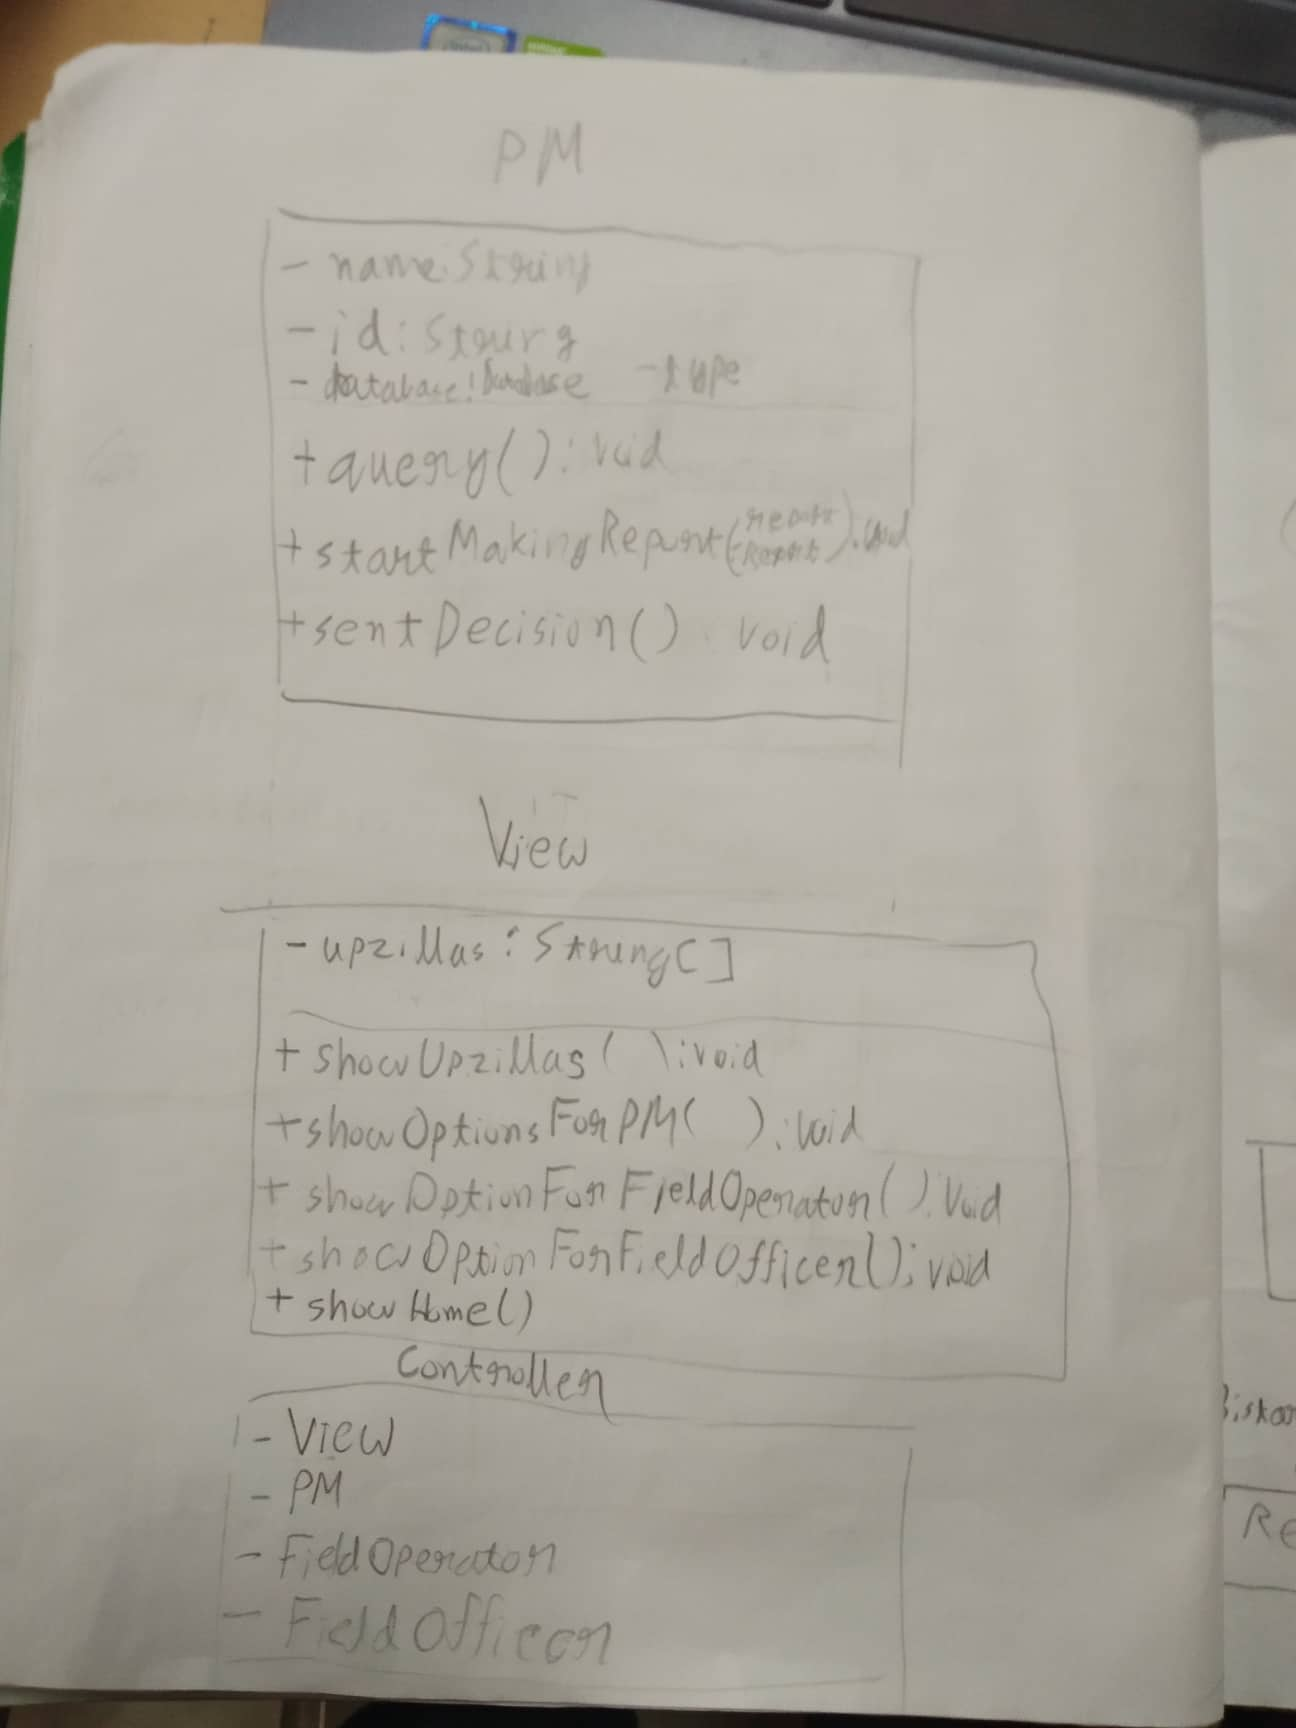 intel
PM
- name: String
- id: String
- database: Database - type
+ query(): void
+ startMakingReport(report: Report): void
+ sentDecision(): void
View
- upzillas: String[]
+ showUpzillas( ): void
+ showOptionsForPM( ): void
+ showOptionForFieldOperator( ): void
+ showOptionForFieldOfficer(): void
+ showHome()
Controller
- View
- PM
- FieldOperator
- FieldOfficer
Re